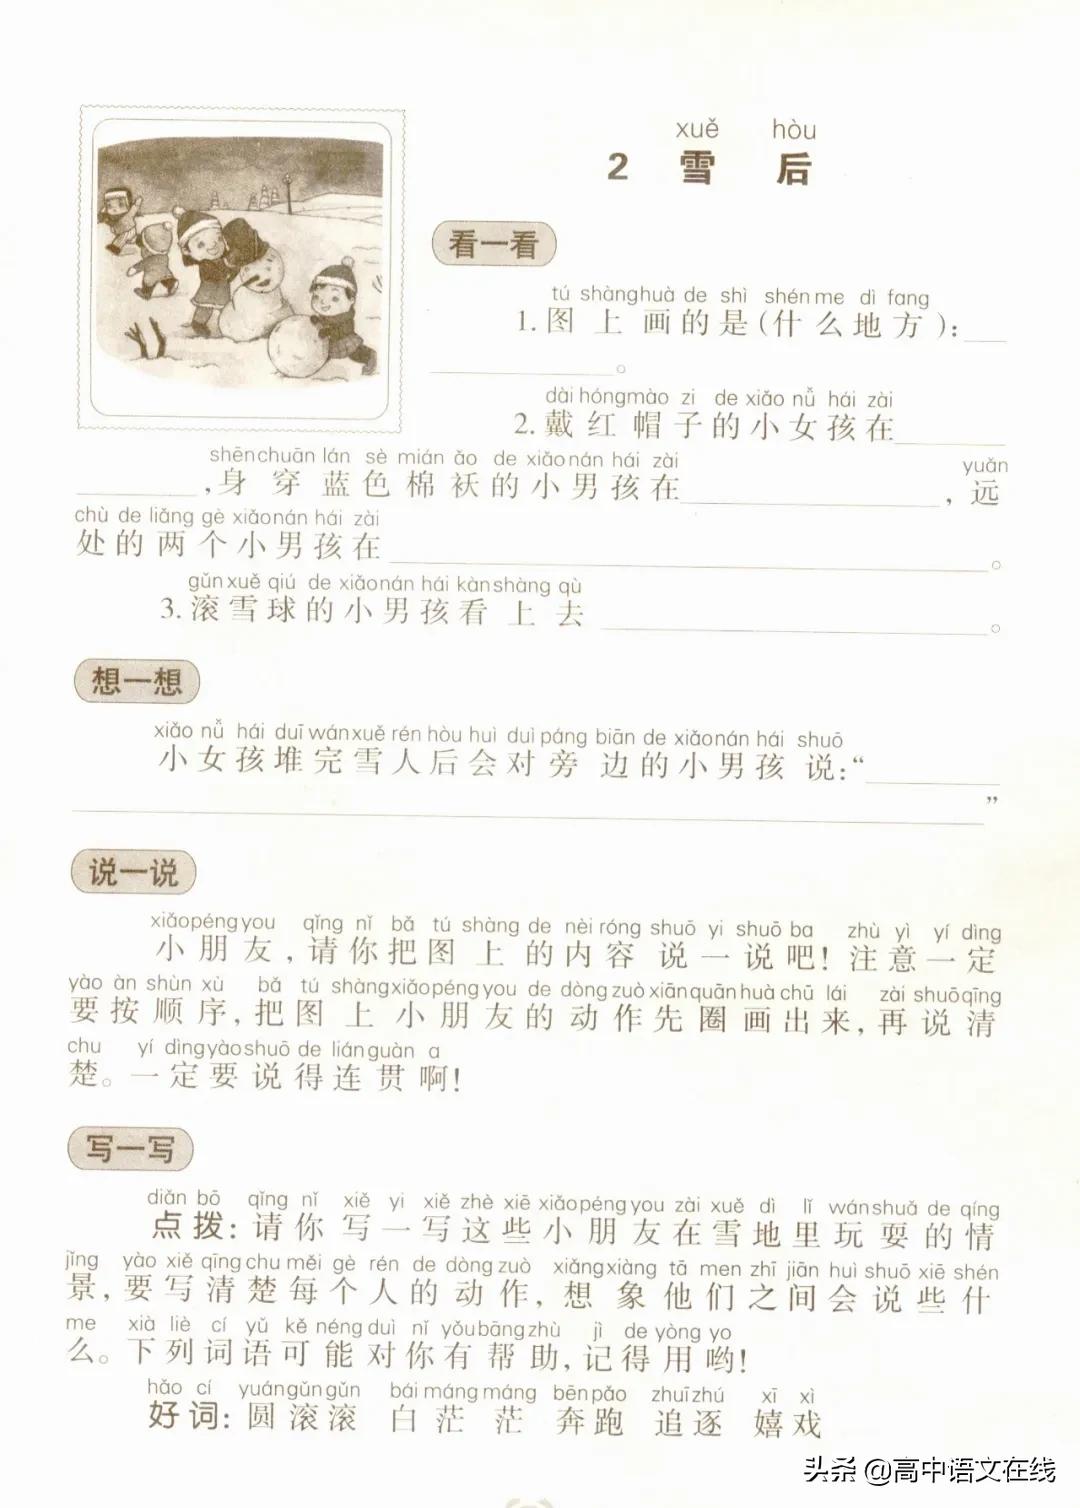 xuě hòu
2 雪 后
看一看
tú shànghuà de shì shén me dì fang
1. 图 上 画 的 是 (什 么 地 方 ):
。
dài hóngmào zi de xiǎo nǚ hái zài
2. 戴 红 帽 子 的 小 女 孩 在
shēnchuān lán sè mián ǎo de xiǎonán hái zài yuǎn
,身 穿 蓝 色 棉 袄 的 小 男 孩 在 , 远
chù de liǎng gè xiǎonán hái zài
处 的 两 个 小 男 孩 在 。
gǔn xuě qiú de xiǎonán hái kànshàng qù
3. 滚 雪 球 的 小 男 孩 看 上 去 。
想一想
xiǎo nǚ hái duī wánxuě rén hòu huì duì páng biān de xiǎonán hái shuō
小 女 孩 堆 完 雪 人 后 会 对 旁 边 的 小 男 孩 说:“
”
说一说
xiǎopéngyou qǐng nǐ bǎ tú shàng de nèi róng shuō yi shuō ba zhù yì yí dìng
小 朋 友 , 请 你 把 图 上 的 内 容 说 一 说 吧! 注 意 一 定
yào àn shùn xù bǎ tú shàngxiǎopéngyou de dòngzuò xiānquānhuà chū lái zài shuōqīng
要 按 顺 序, 把 图 上 小 朋 友 的 动 作 先 圈 画 出 来, 再 说 清
chu yí dìngyàoshuō de liánguàn a
楚。一 定 要 说 得 连 贯 啊!
写一写
diǎn bō qǐng nǐ xiě yi xiě zhè xiē xiǎopéngyou zài xuě dì lǐ wánshuǎ de qíng
点 拨: 请 你 写 一 写 这 些 小 朋 友 在 雪 地 里 玩 耍 的 情
jǐng yào xiě qīngchu měi gè rén de dòngzuò xiǎngxiàng tā men zhī jiān huì shuō xiē shén
景, 要 写 清 楚 每 个 人 的 动 作, 想 象 他 们 之 间 会 说 些 什
me xià liè cí yǔ kě néngduì nǐ yǒubāngzhù jì de yòng yo
么。下 列 词 语 可 能 对 你 有 帮 助, 记 得 用 哟!
hǎo cí yuángǔngǔn bái mángmáng bēnpǎo zhuīzhú xī xì
好 词: 圆 滚 滚 白 茫 茫 奔 跑 追 逐 嬉 戏
头条 @高中语文在线